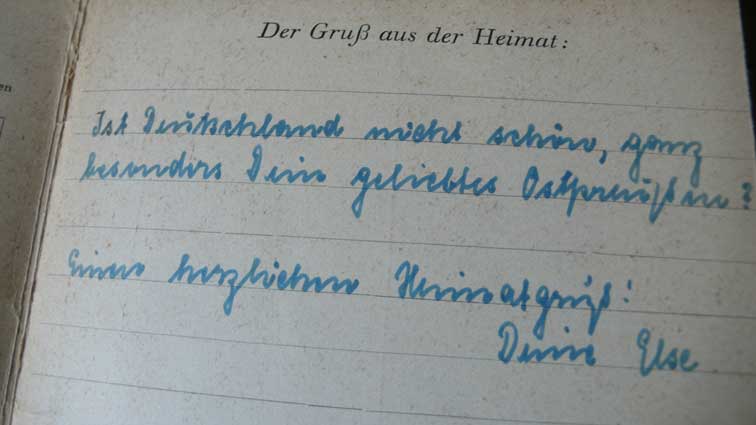 Der Gruß aus der Heimat:
en
Ist Deutschland nicht schön, ganz
besonders Dein geliebtes Ostpreußen?
Einen herzlichen Heimatgruß!
Deine Else